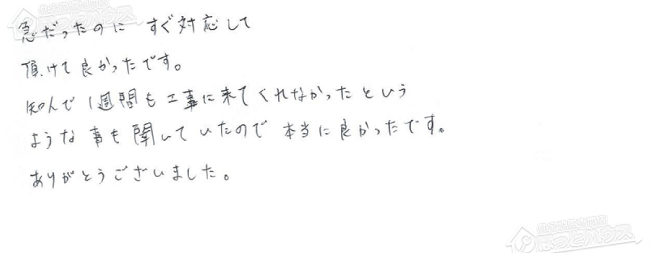 急だったのに すぐ対応して
頂けて良かったです。
知人で1週間も工事に来てくれなかったという
ような事も聞いていたので 本当に良かったです。
ありがとうございました。